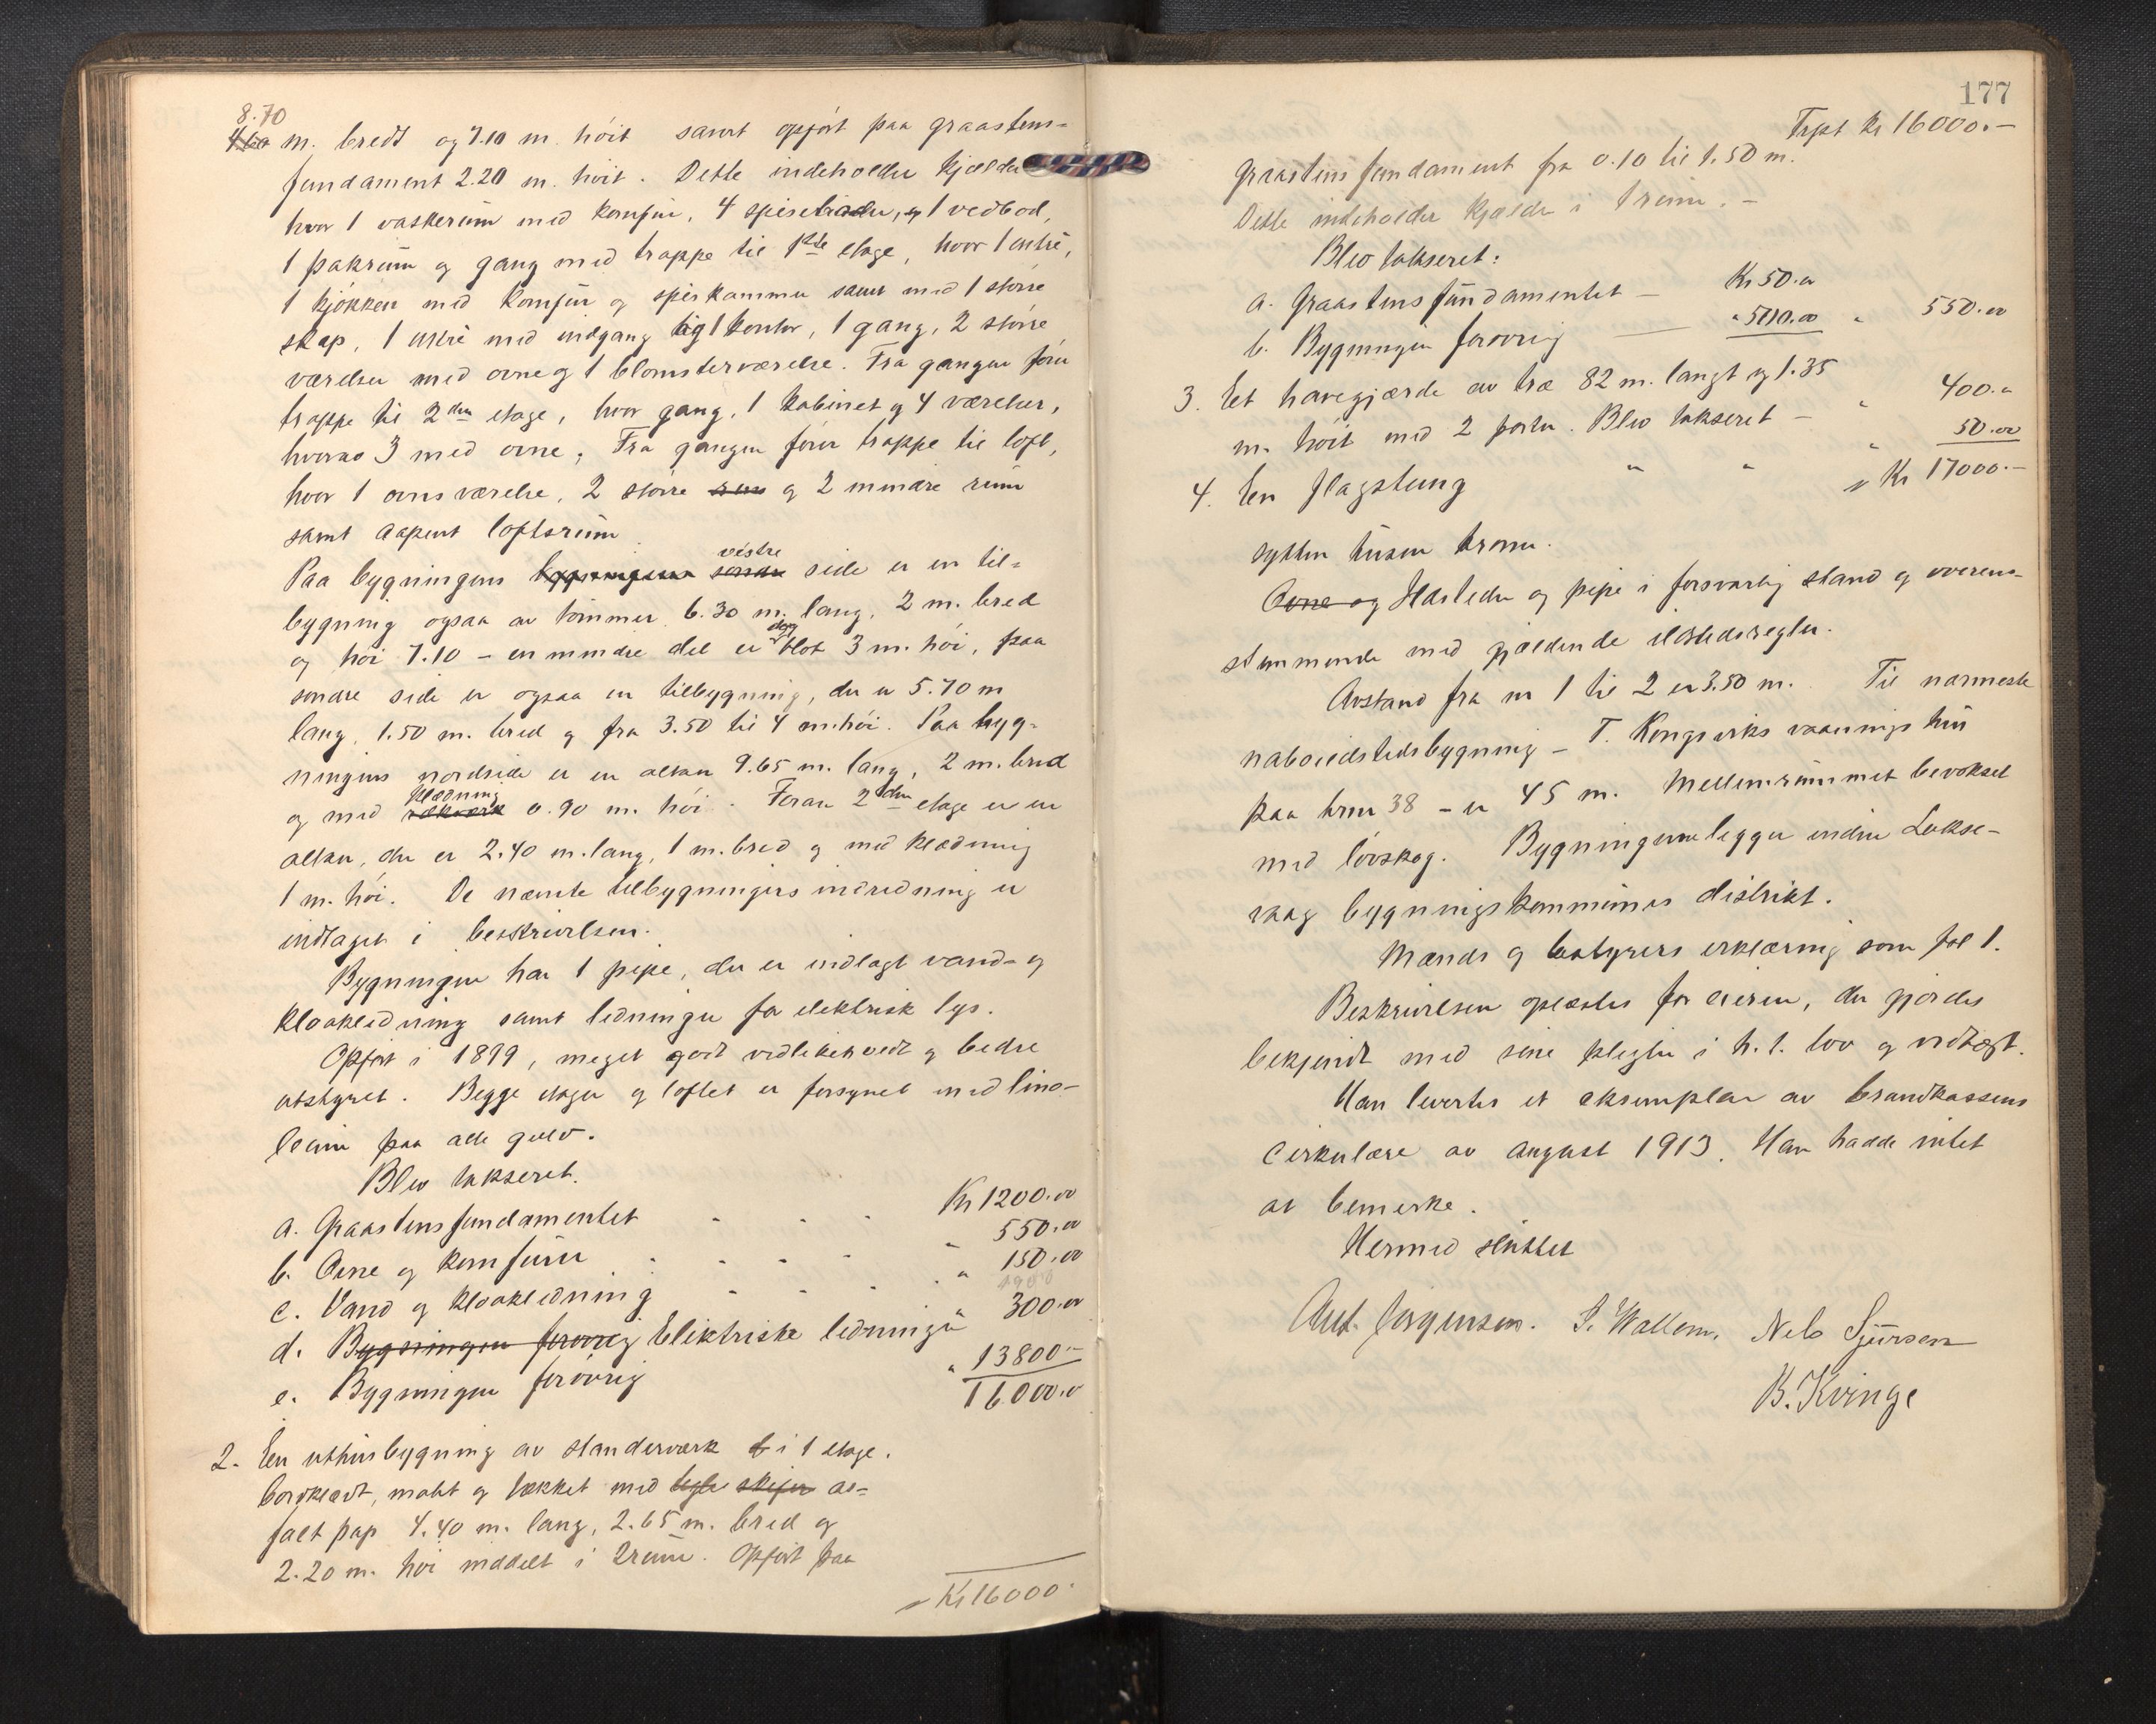 8.70
m. bredt og 7.10 m. höit samt opfört paa graastens-
fundament 2.20 m. höit. Dette indeholder kjælder
hvor 1 vaskerum med komfur, 4 spiseboder, og 1 vedbod,
1 pakrum og gang med trappe til 1ste etage, hvor 1 entré,
1 kjökken med komfur og spiskammer samt med 1 större
skap, 1 entré med indgang til 1 kontor, 1 gang, 2 större
værelser med ovne og 1 blomsterværelse. Fra gangen förer
trappe til 2den etage, hvor gang, 1 kabinet og 4 værelser,
hvorav 3 med ovne. Fra gangen förer trappe til loft,
hvor 1 ovnsværelse, 2 större rum og 2 mindre rum
samt aapent loftsrum.
Paa bygningens bygningens söndre vestre side er en til-
bygning ogsaa av tömmer 6.30 m. lang, 2 m. bred
og höi 7.10 – en mindre del er dog blot 3 m. höi, paa
söndre side er ogsaa en tilbygning, der er 5.70 m
lang, 1.50 m. bred og fra 3.50 til 4 m. höi. Paa byg-
ningens nordside er en altan 9.65 m. lang, 2 m. bred
og med rækværk klædning 0.90 m. höi. Foran 2den etage er en
altan, der er 2.40 m. lang, 1 m. bred og med klædning
1 m. höi. De nævnte tilbygningers indredning er
indtaget i beskrivelsen.
Bygningen har 1 pipe, der er indlagt vand- og
kloakledning samt ledninger for elektrisk lys.
Opfört i 1899, meget godt vedlikeholdt og bedre
utstyret. Begge etager og loftet er forsynet med lino-
leum paa alle gulv.
Blev takseret.
a. Graastensfundamentet - - - Kr 1200.00
b. Ovne og komfurer - - - - " 550.00
c. Vand og kloakledning - - - " 150.00
d. Bygningen forövrig Elektriske ledninger " 300.00
e. Bygningen forövrig " 13800.-
16000.00
2. En uthusbygning av standerværk i 1 etage.
bordklædt, malt og tækket med tegl skifer as-
falt pap 4.40 m. lang, 2.65 m. bred og
2.20 m. höi inddelt i 2 rum. Opfört paa
Kr 16000.
177
Trpt Kr 16000.-
graastens fundament fra 0.10 til 1.50 m.
Dette indeholder kjælder i 1 rum. -
Blev takseret:
a. Graastensfundamentet - Kr 50.00
b. Bygningen forövrig - " 500.00 " 550.00
3. Et havegjærde av træ 82 m. langt og 1.35
m. höit med 2 porter. Blev takseret - " 400.00
4. En flagstang " " " 50.00
Kr 17000.-
sytten tusen kroner.
Ovne og Ildsteder og pipe i forsvarlig stand og overens-
stemmende med gjældende ildstedsregler.
Avstand fra nr 1 til 2 er 3.50 m. Til nærmeste
naboildstedsbygning – T. Kongsviks vaaningshus
paa brnr 38 – er 45 m. Mellemrummet bevokset
med lövskog. Bygningerne ligger inden Lakse-
vaag bygningskommunes distrikt.
Mænds og bestyrers erklæring som fol 1.
Beskrivelsen oplæstes for eieren, der gjordes
bekjendt med sine pligter i h. t. lov og vedtægt.
Han levertes et eksemplar av brandkassens
cirkulære av august 1913. Han hadde intet
at bemerke.
Hermed sluttet
Ant. Jörgensen. S. Wallem. Nels Sjursen
B. Kvinge